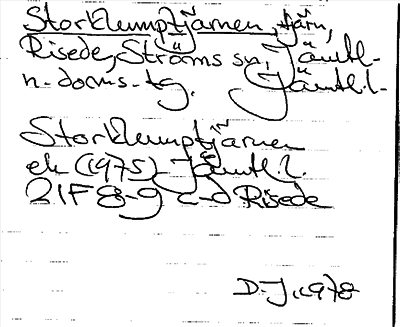 Storklumptjärnen, tjärn,
Risede, Ströms sn, Jämtl-
n-doms-tg. Jämtl.l.
Storklumptjärnen
ek (1975) Jämtl.l.
21F 8-9 c-d Risede
D-J, 1978